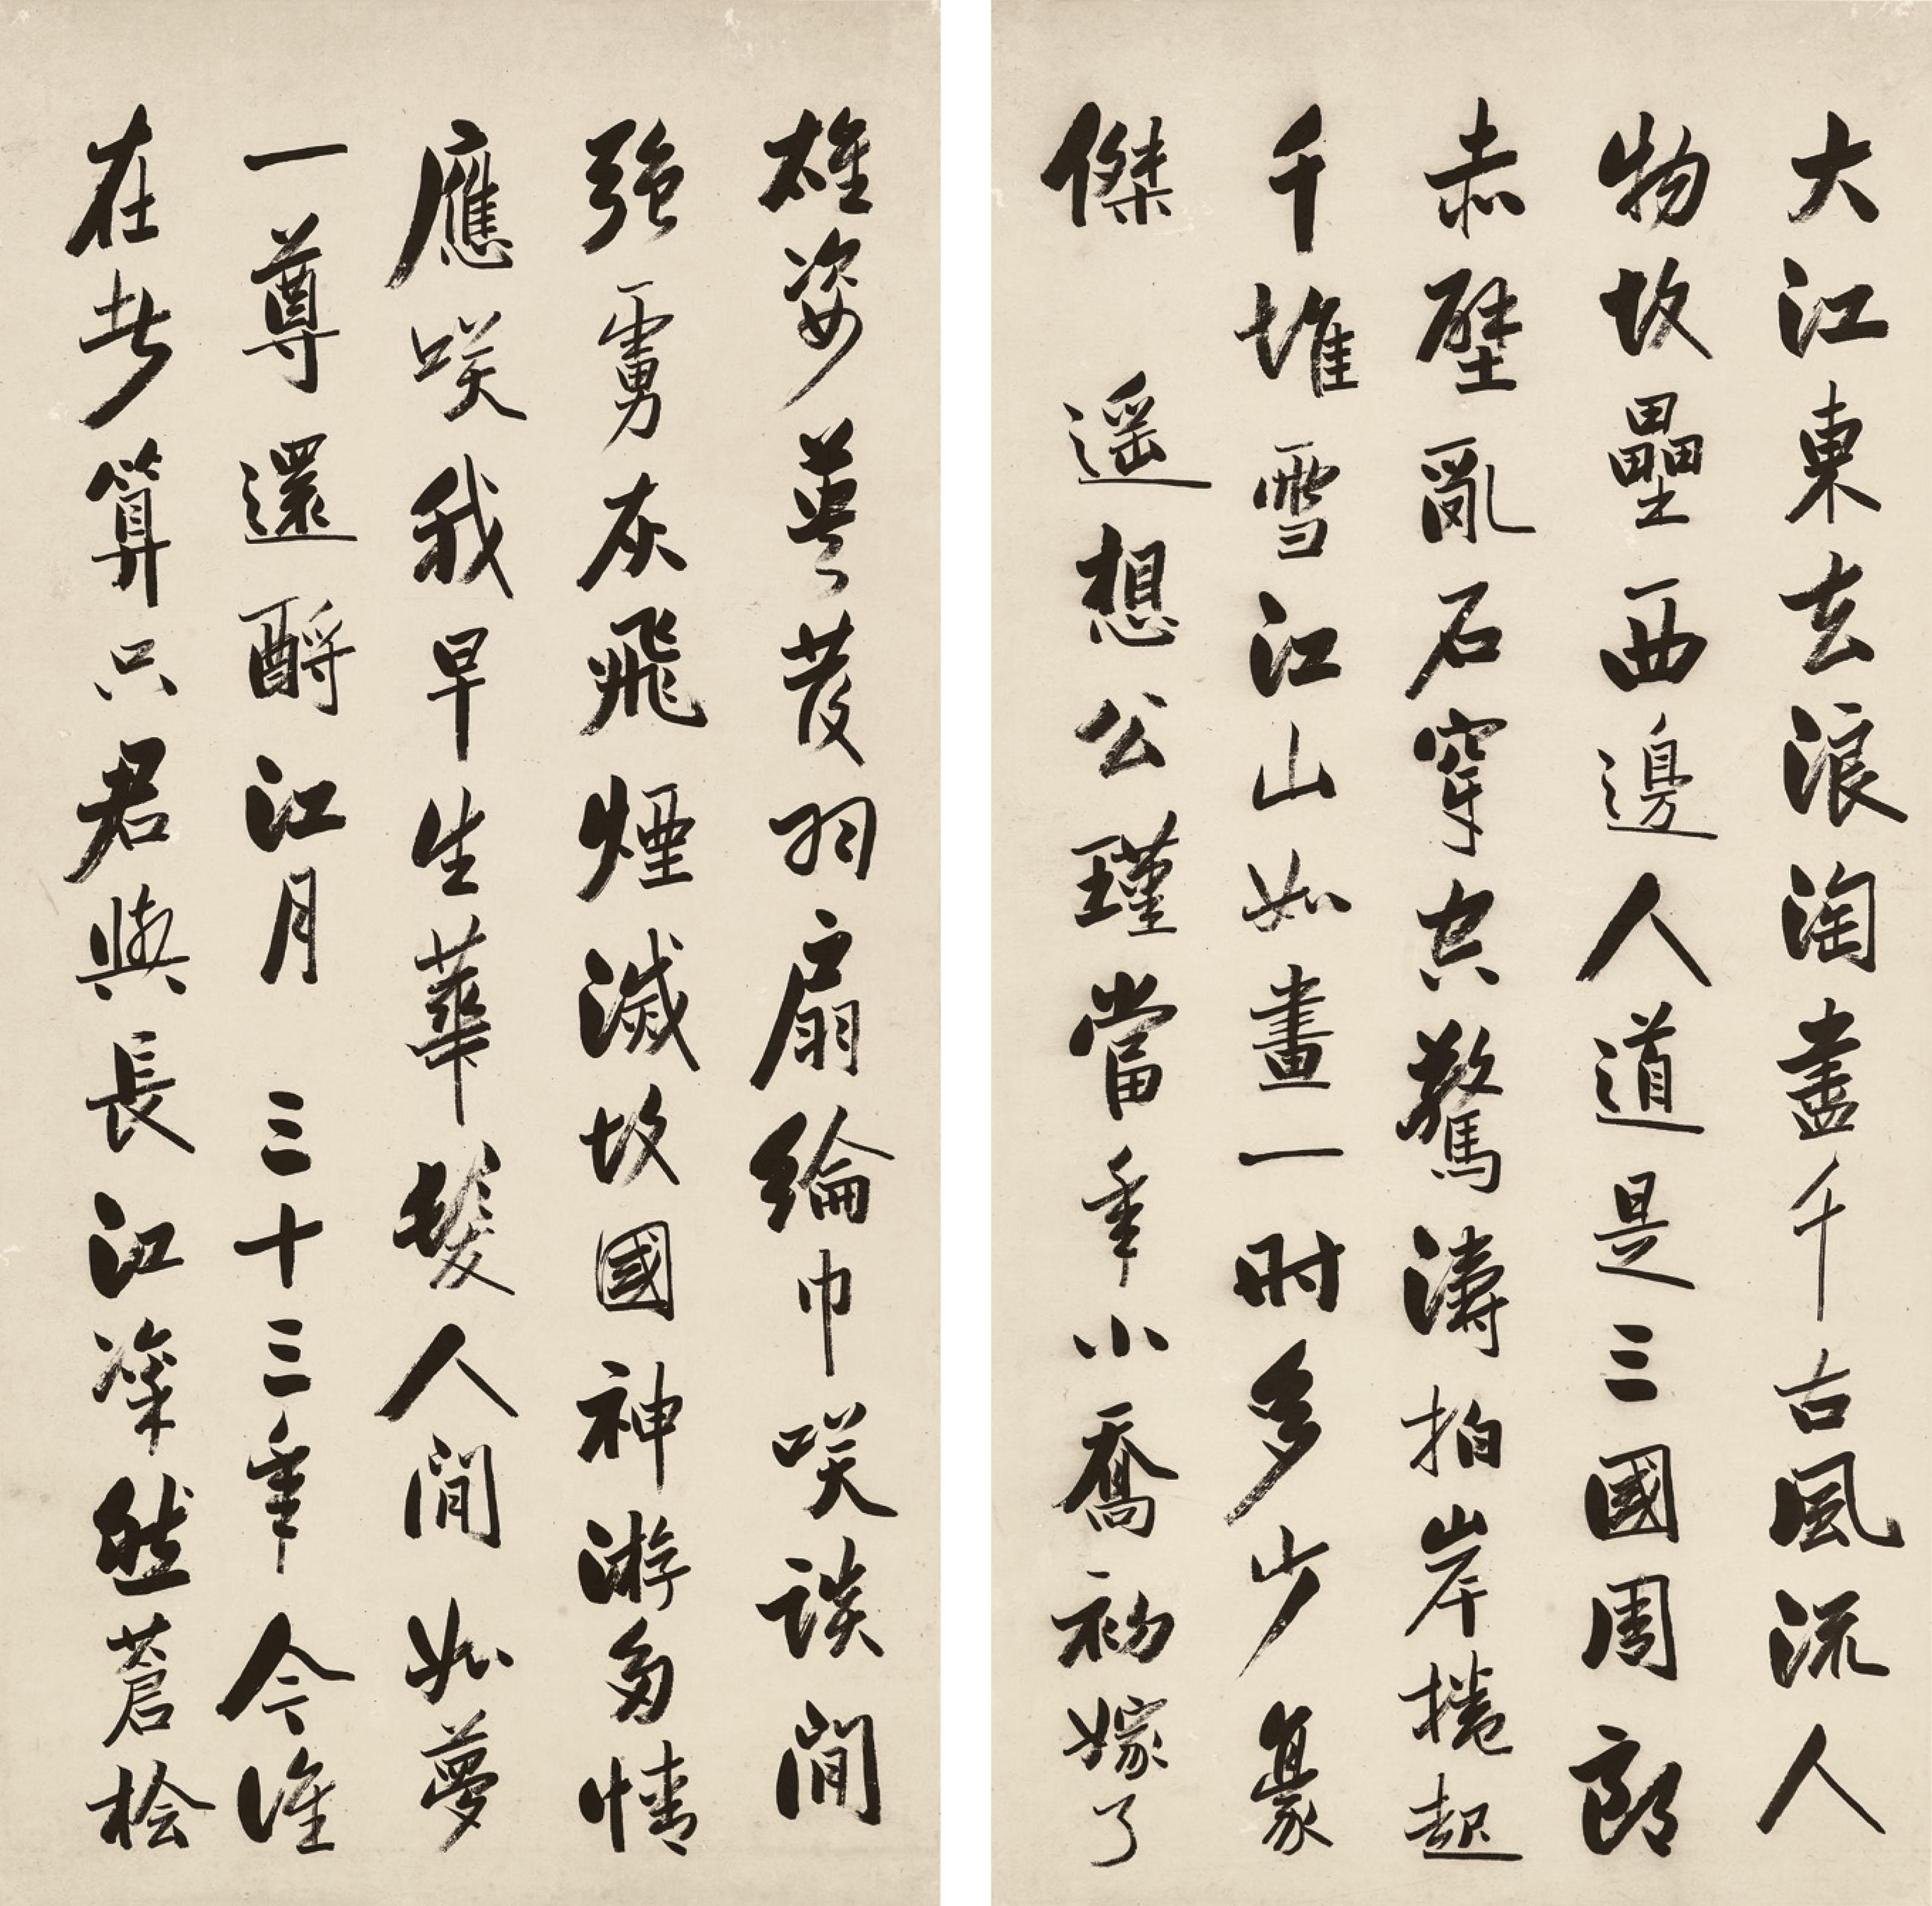 大江東去浪淘盡千古風流人
物故壘西邊人道是三國周郎
赤壁亂石穿空驚濤拍岸捲起
千堆雪江山如畫一時多少豪
傑 遥想公瑾當年小喬初嫁了
雄姿英發羽扇綸巾咲談間
強虜灰飛煙滅故國神游多情
應咲我早生華髮人間如夢
一尊還酹江月 三十三年今誰
在者算只君與長江凜然蒼桧